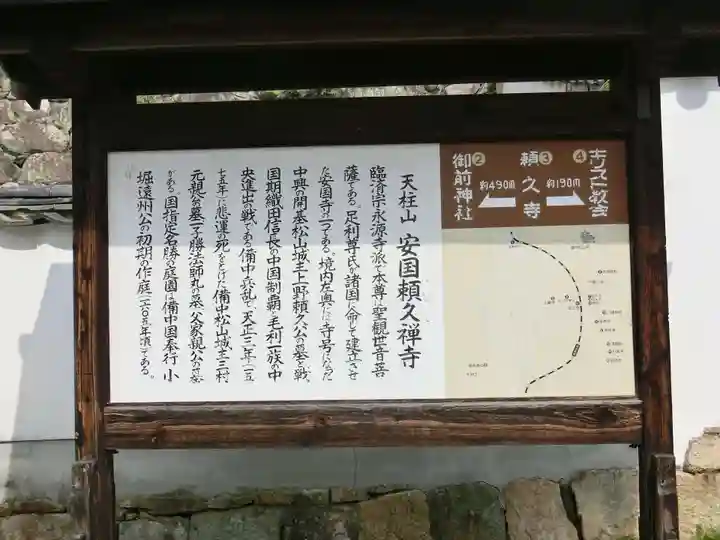 キリスト教会
④
頼久寺
③
御前神社
②
約190m
約490m
天柱山 安国頼久禅寺
臨済宗永源寺派で本尊は聖観世音菩
薩である。足利尊氏が諸国に命じて建立させ
た安国寺の一つである。境内左奥には寺号になった
中興の開基松山城主上野頼久公の墓と、戦
国期織田信長の中国制覇と毛利一族の中
央進出の戦である備中兵乱で、天正三年(一五
七五年)に悲運の死をとげた備中松山城主三村
元親公の墓、一子勝法師丸の墓、父家親公の墓
がある。国指定名勝の庭園は備中国奉行 小
堀遠州公の初期の作庭(一六〇五年頃)である。